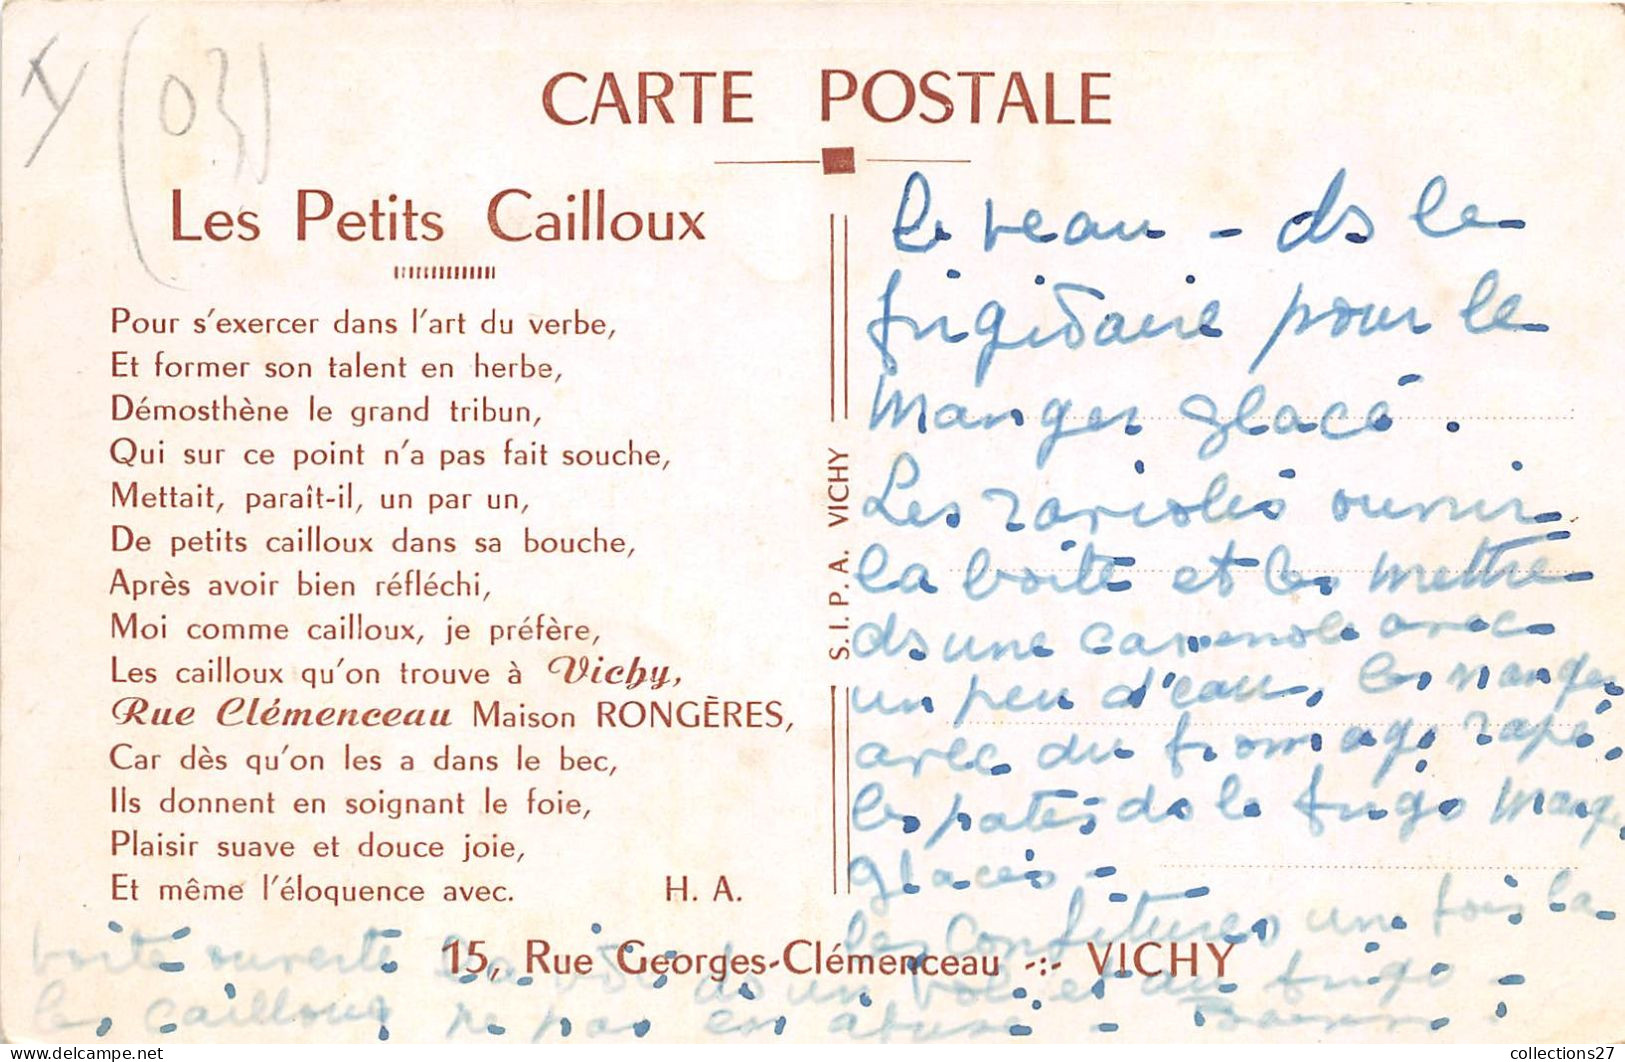 Y (03)
CARTE POSTALE
Les Petits Cailloux
Pour s'exercer dans l'art du verbe,
Et former son talent en herbe,
Démosthène le grand tribun,
Qui sur ce point n'a pas fait souche,
Mettait, paraît-il, un par un,
De petits cailloux dans sa bouche,
Après avoir bien réfléchi,
Moi comme cailloux, je préfère,
Les cailloux qu'on trouve à Vichy,
Rue Clémenceau Maison RONGÈRES,
Car dès qu'on les a dans le bec,
Ils donnent en soignant le foie,
Plaisir suave et douce joie,
Et même l'éloquence avec. H. A.
15, Rue Georges-Clémenceau -:- VICHY
S. I. P. A. VICHY
le veau - ds le
frigidaire pour le
manger glacé.
Les raviolis ouvrir
la boite et les mettre
ds une casserole avec
un peu d'eau, les manger
avec du fromage rapé.
les patés ds le frigo manger
glacés -
les confitures une fois la
boite ouverte la ds un bol et au frigo -
les cailloux ne pas en abuser -
collections27